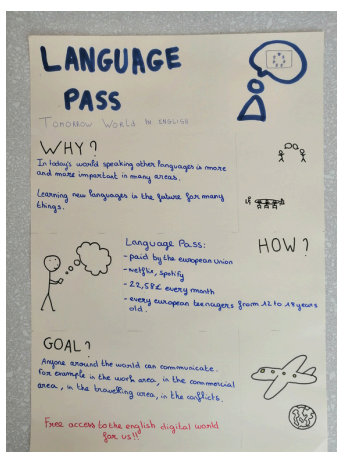 LANGUAGE
PASS
TOMORROW WORLD in ENGLISH
WHY?
In today's world speaking other languages is more
and more important in many areas.
Learning new languages is the future for many
things.
HOW?
Language Pass:
- paid by the european union
- netflix, spotify
- 22,58€ every month
- every european teenagers from 12 to 18 years
old.
GOAL?
Anyone around the world can communicate.
For example in the work area, in the commercial
area, in the travelling area, in the conflicts.
Free access to the english digital world
for us!!